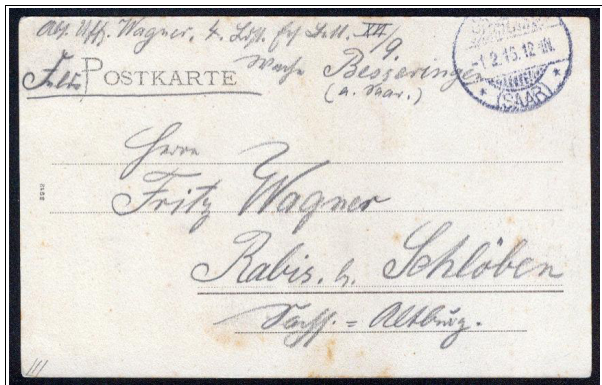 Abs. Uff. Wagner. 4. Ldst. Inf. Batt. XII/9.
Wache Besseringen
(a. Saar.)
Feld POSTKARTE
-1.2.15.12-1N.
* (SAAR) *
Herrn
Fritz Wagner
Rabis. b. Schlöben
Sachs.=Altburg.